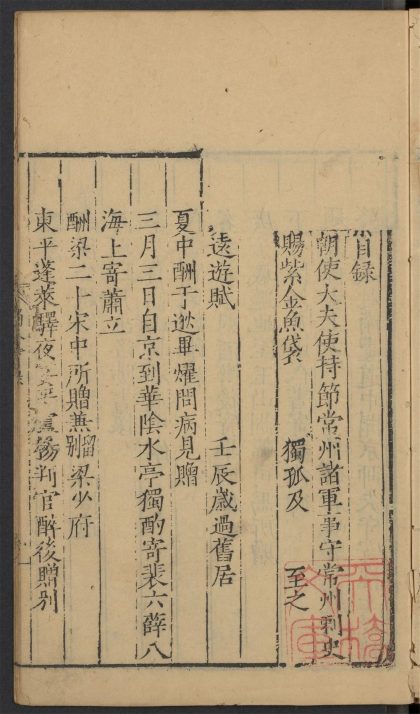 目録
朝使大夫使持節常州諸軍事守常州刺史
賜紫金魚袋 獨孤及 至之
遠遊賦 壬辰歲過舊居
夏中酬于逖畢燿問病見贈
三月三日自京到華陰水亭獨酌寄裴六薛八
海上寄蕭立
酬梁二十宋中所贈兼留別梁少府
東平蓬萊驛夜宴平盧判官醉後贈別